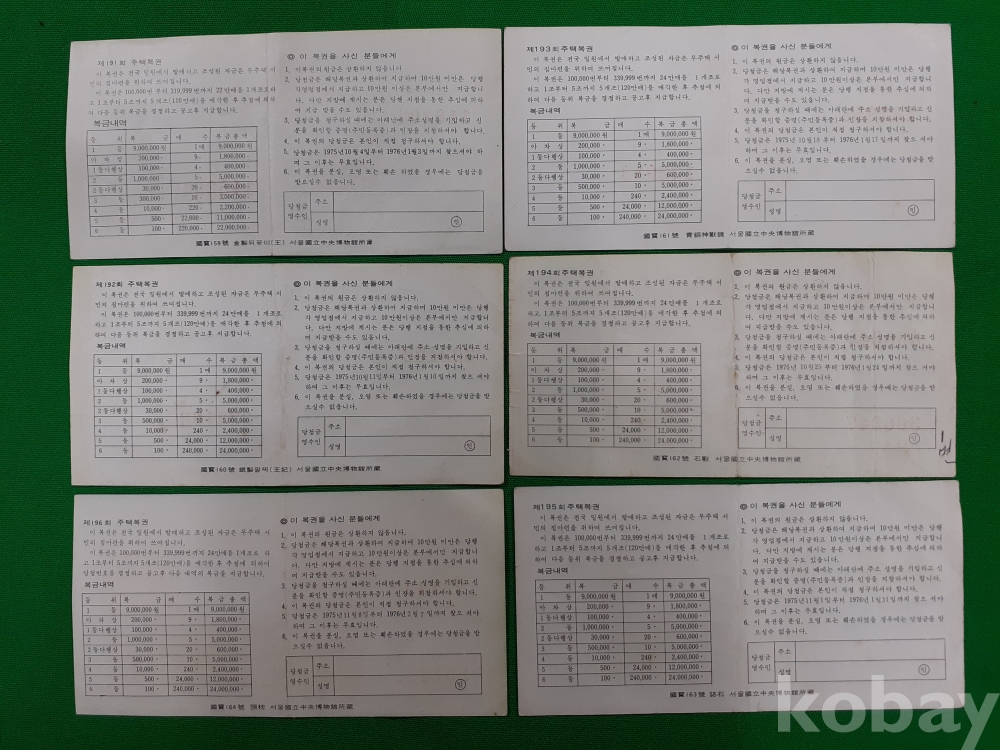 제191회 주택복권
이 복권은 전국 일원에서 발매하고 조성된 자금은 무주택 서
민의 집마련을 위하여 쓰여집니다.
이 복권은 100,000번부터 319,999번까지 22만매를 1개조로하
고 1조부터 5조까지 5개조(120만매)를 매각한 후 추첨에 의하
여 다음 등위 복금을 결정하고 공고후 지급합니다.
복금내역
등 위 복 금 매 수 복금총액
1 등 9,000,000원 1매 9,000,000원
아차상 200,000〃 9〃 1,800,000〃
1등다행상 100,000〃 4〃 400,000〃
2 등 1,000,000〃 5〃 5,000,000〃
2등다행상 30,000〃 20〃 600,000〃
3 등 300,000〃 10〃 3,000,000〃
4 등 10,000〃 220〃 2,200,000〃
5 등 500〃 22,000〃 11,000,000〃
6 등 100〃 220,000〃 22,000,000〃
◎ 이 복권을 사신 분들에게
1. 이복권의 원금은 상환하지 않읍니다.
2. 당첨금은 해당복권과 상환하여 지급하며 10만원 미만은 당행
각영업점에서 지급하고 10만원이상은 본부에서만 지급합니
다. 다만 지방에 계시는 분은 당행 지점을 통한 추심에 의하
여 지급 받을 수도 있읍니다.
3. 당첨금을 청구하실 때에는 아래란에 주소 성명을 기입하고 신
분을 확인할 증명(주민등록증)과 인장을 지참하셔야 합니다.
4. 이 복권의 당첨금은 본인이 직접 청구하셔야 합니다.
5. 당첨금은 1975년10월4일부터 1976년1월3일까지 찾으셔야 하
며 그 이후는 무효입니다.
6. 이 복권을 분실, 오염 또는 훼손 하였을 경우에는 당첨금을
받으실수 없읍니다.
당첨금
영수인
주소
성명
인
國寶159號 金製뒤꽂이(王) 서울國立中央博物館所藏
제193회 주택복권
이 복권은 전국 일원에서 발매하고 조성된 자금은 무주택 서
민의 집마련을 위하여 쓰여집니다.
이 복권은 100,000번부터 339,999번까지 24만매를 1개조로
하고 1조부터 5조까지 5개조(120만매)를 매각한 후 추첨에 의
하여 다음 등위 복금을 결정하고 공고후 지급합니다.
복금내역
등 위 복 금 매 수 복금총액
1 등 9,000,000원 1매 9,000,000원
아차상 200,000〃 9〃 1,800,000〃
1등다행상 100,000〃 4〃 400,000〃
2 등 1,000,000〃 5〃 5,000,000〃
2등다행상 30,000〃 20〃 600,000〃
3 등 500,000〃 10〃 5,000,000〃
4 등 10,000〃 240〃 2,400,000〃
5 등 500〃 24,000〃 12,000,000〃
6 등 100〃 240,000〃 24,000,000〃
◎ 이 복권을 사신 분들에게
1. 이 복권의 원금은 상환하지 않읍니다.
2. 당첨금은 해당복권과 상환하여 지급하며 10만원 미만은 당행
각 영업점에서 지급하고 10만원이상은 본부에서만 지급합니
다. 다만 지방에 계시는 분은 당행 지점을 통한 추심에 의하
여 지급받을 수도 있읍니다.
3. 당첨금을 청구하실 때에는 아래란에 주소 성명을 기입하고 신
분을 확인할 증명(주민등록증)과 인장을 지참하셔야 합니다.
4. 이 복권의 당첨금은 본인이 직접 청구하셔야 합니다.
5. 당첨금은 1975년 10월18일부터 1976년 1월17일까지 찾으셔야
하며 그 이후는 무효입니다.
6. 이 복권을 분실, 오염 또는 훼손하였을 경우에는 당첨금을 받
으실수 없읍니다.
당첨금
영수인
주소
성명
인
國寶161號 青銅神獸鏡 서울國立中央博物館所藏
제192회 주택복권
이 복권은 전국 일원에서 발매하고 조성된 자금은 무주택 서
민의 집마련을 위하여 쓰여집니다.
이 복권은 100,000번부터 339,999번까지 24만매를 1개조로
하고 1조부터 5조까지 5개조(120만매)를 매각한 후 추첨에 의
하여 다음 등위 복금을 결정하고 공고후 지급합니다.
복금내역
등 위 복 금 매 수 복금총액
1 등 9,000,000원 1매 9,000,000원
아차상 200,000〃 9〃 1,800,000〃
1등다행상 100,000〃 4〃 400,000〃
2 등 1,000,000〃 5〃 5,000,000〃
2등다행상 30,000〃 20〃 600,000〃
3 등 500,000〃 10〃 5,000,000〃
4 등 10,000〃 240〃 2,400,000〃
5 등 500〃 24,000〃 12,000,000〃
6 등 100〃 240,000〃 24,000,000〃
◎ 이 복권을 사신 분들에게
1. 이 복권의 원금은 상환하지 않읍니다.
2. 당첨금은 해당복권과 상환하여 지급하며 10만원 미만은 당행
각 영업점에서 지급하고 10만원이상은 본부에서만 지급합니
다. 다만 지방에 계시는 분은 당행 지점을 통한 추심에 의하
여 지급받을 수도 있읍니다.
3. 당첨금을 청구하실 때에는 아래란에 주소 성명을 기입하고 신
분을 확인할 증명(주민등록증)과 인장을 지참하셔야 합니다.
4. 이 복권의 당첨금은 본인이 직접 청구하셔야 합니다.
5. 당첨금은 1975년10월11일부터 1976년1월10일까지 찾으셔야
하며 그 이후는 무효입니다.
6. 이 복권을 분실, 오염 또는 훼손하였을 경우에는 당첨금을 받
으실수 없읍니다.
당첨금
영수인
주소
성명
인
國寶160號 銀製팔찌(王妃) 서울國立中央博物館所藏
제194회 주택복권
이 복권은 전국 일원에서 발매하고 조성된 자금은 무주택 서
민의 집마련을 위하여 쓰여집니다.
이 복권은 100,000번부터 339,999번까지 24만매를 1개조로
하고 1조부터 5조까지 5개조(120만매)를 매각한 후 추첨에 의
하여 다음 등위 복금을 결정하고 공고후 지급합니다.
복금내역
등 위 복 금 매 수 복금총액
1 등 9,000,000원 1매 9,000,000원
아차상 200,000〃 9〃 1,800,000〃
1등다행상 100,000〃 4〃 400,000〃
2 등 1,000,000〃 5〃 5,000,000〃
2등다행상 30,000〃 20〃 600,000〃
3 등 500,000〃 10〃 5,000,000〃
4 등 10,000〃 240〃 2,400,000〃
5 등 500〃 24,000〃 12,000,000〃
6 등 100〃 240,000〃 24,000,000〃
◎ 이 복권을 사신 분들에게
1. 이 복권의 원금은 상환하지 않읍니다.
2. 당첨금은 해당복권과 상환하여 지급하며 10만원 미만은 당행
각 영업점에서 지급하고 10만원이상은 본부에서만 지급합니
다. 다만 지방에 계시는 분은 당행 지점을 통한 추심에 의하
여 지급받을 수도 있읍니다.
3. 당첨금을 청구하실 때에는 아래란에 주소 성명을 기입하고 신
분을 확인할 증명(주민등록증)과 인장을 지참하셔야 합니다.
4. 이 복권의 당첨금은 본인이 직접 청구하셔야 합니다.
5. 당첨금은 1975년 10월25일부터 1976년 1월24일까지 찾으셔야
하며 그 이후는 무효입니다.
6. 이 복권을 분실, 오염 또는 훼손하였을 경우에는 당첨금을 받
으실수 없읍니다.
당첨금
영수인
주소
성명
인
國寶162號 石獸 서울國立中央博物館所藏
제196회 주택복권
이 복권은 전국 일원에서 발매하고 조성된 자금은 무주택 서
민의 집마련을 위하여 쓰여집니다.
이 복권은 100,000번부터 339,999번까지 24만매를 1개조로 하
고 1조부터 5조까지 5개조(120만매)를 매각한 후 추첨에 의하여
당첨번호를 결정하고 공고 후 다음 내역의 복금을 지급합니다.
복금내역
등 위 복 금 매 수 복금총액
1 등 9,000,000원 1매 9,000,000원
아차상 200,000〃 9〃 1,800,000〃
1등다행상 100,000〃 4〃 400,000〃
2 등 1,000,000〃 5〃 5,000,000〃
2등다행상 30,000〃 20〃 600,000〃
3 등 500,000〃 10〃 5,000,000〃
4 등 10,000〃 240〃 2,400,000〃
5 등 500〃 24,000〃 12,000,000〃
6 등 100〃 240,000〃 24,000,000〃
◎ 이 복권을 사신 분들에게
1. 이 복권의 원금은 상환하지 않읍니다.
2. 당첨금은 해당복권과 상환하여 지급하며 10만원 미만은 당행
각 영업점에서 지급하고 10만원이상은 본부에서만 지급합니
다. 다만 지방에 계시는 분은 당행 지점을 통한 추심에 의하
여 지급받을 수도 있읍니다.
3. 당첨금을 청구하실 때에는 아래란에 주소 성명을 기입하고 신
분을 확인할 증명(주민등록증)과 인장을 지참하셔야 합니다.
4. 이 복권의 당첨금은 본인이 직접 청구하셔야 합니다.
5. 당첨금은 1975년11월8일부터 1976년2월7일까지 찾으셔야
하며 그 이후는 무효입니다.
6. 이 복권을 분실, 오염 또는 훼손하였을 경우에는 당첨금을 받
으실수 없읍니다.
당첨금
영수인
주소
성명
인
國寶164號 頭枕 서울國立中央博物館所藏
제195회 주택복권
이 복권은 전국 일원에서 발매하고 조성된 자금은 무주택 서
민의 집마련을 위하여 쓰여집니다.
이 복권은 100,000번부터 339,999번까지 24만매를 1개조로
하고 1조부터 5조까지 5개조(120만매)를 매각한 후 추첨에 의
하여 다음 등위 복금을 결정하고 공고후 지급합니다.
복금내역
등 위 복 금 매 수 복금총액
1 등 9,000,000원 1매 9,000,000원
아차상 200,000〃 9〃 1,800,000〃
1등다행상 100,000〃 4〃 400,000〃
2 등 1,000,000〃 5〃 5,000,000〃
2등다행상 30,000〃 20〃 600,000〃
3 등 500,000〃 10〃 5,000,000〃
4 등 10,000〃 240〃 2,400,000〃
5 등 500〃 24,000〃 12,000,000〃
6 등 100〃 240,000〃 24,000,000〃
◎ 이 복권을 사신 분들에게
1. 이 복권의 원금은 상환하지 않읍니다.
2. 당첨금은 해당복권과 상환하여 지급하며 10만원 미만은 당행
각 영업점에서 지급하고 10만원이상은 본부에서만 지급합니
다. 다만 지방에 계시는 분은 당행 지점을 통한 추심에 의하
여 지급받을 수도 있읍니다.
3. 당첨금을 청구하실 때에는 아래란에 주소 성명을 기입하고 신
분을 확인할 증명(주민등록증)과 인장을 지참하셔야 합니다.
4. 이 복권의 당첨금은 본인이 직접 청구하셔야 합니다.
5. 당첨금은 1975년11월1일부터 1976년1월31일까지 찾으셔
야하며 그 이후는 무효입니다.
6. 이 복권을 분실, 오염 또는 훼손하였을 경우에는 당첨금을 받
으실수 없읍니다.
당첨금
영수인
주소
성명
인
國寶163號 誌石 서울國立中央博物館所藏
kobay